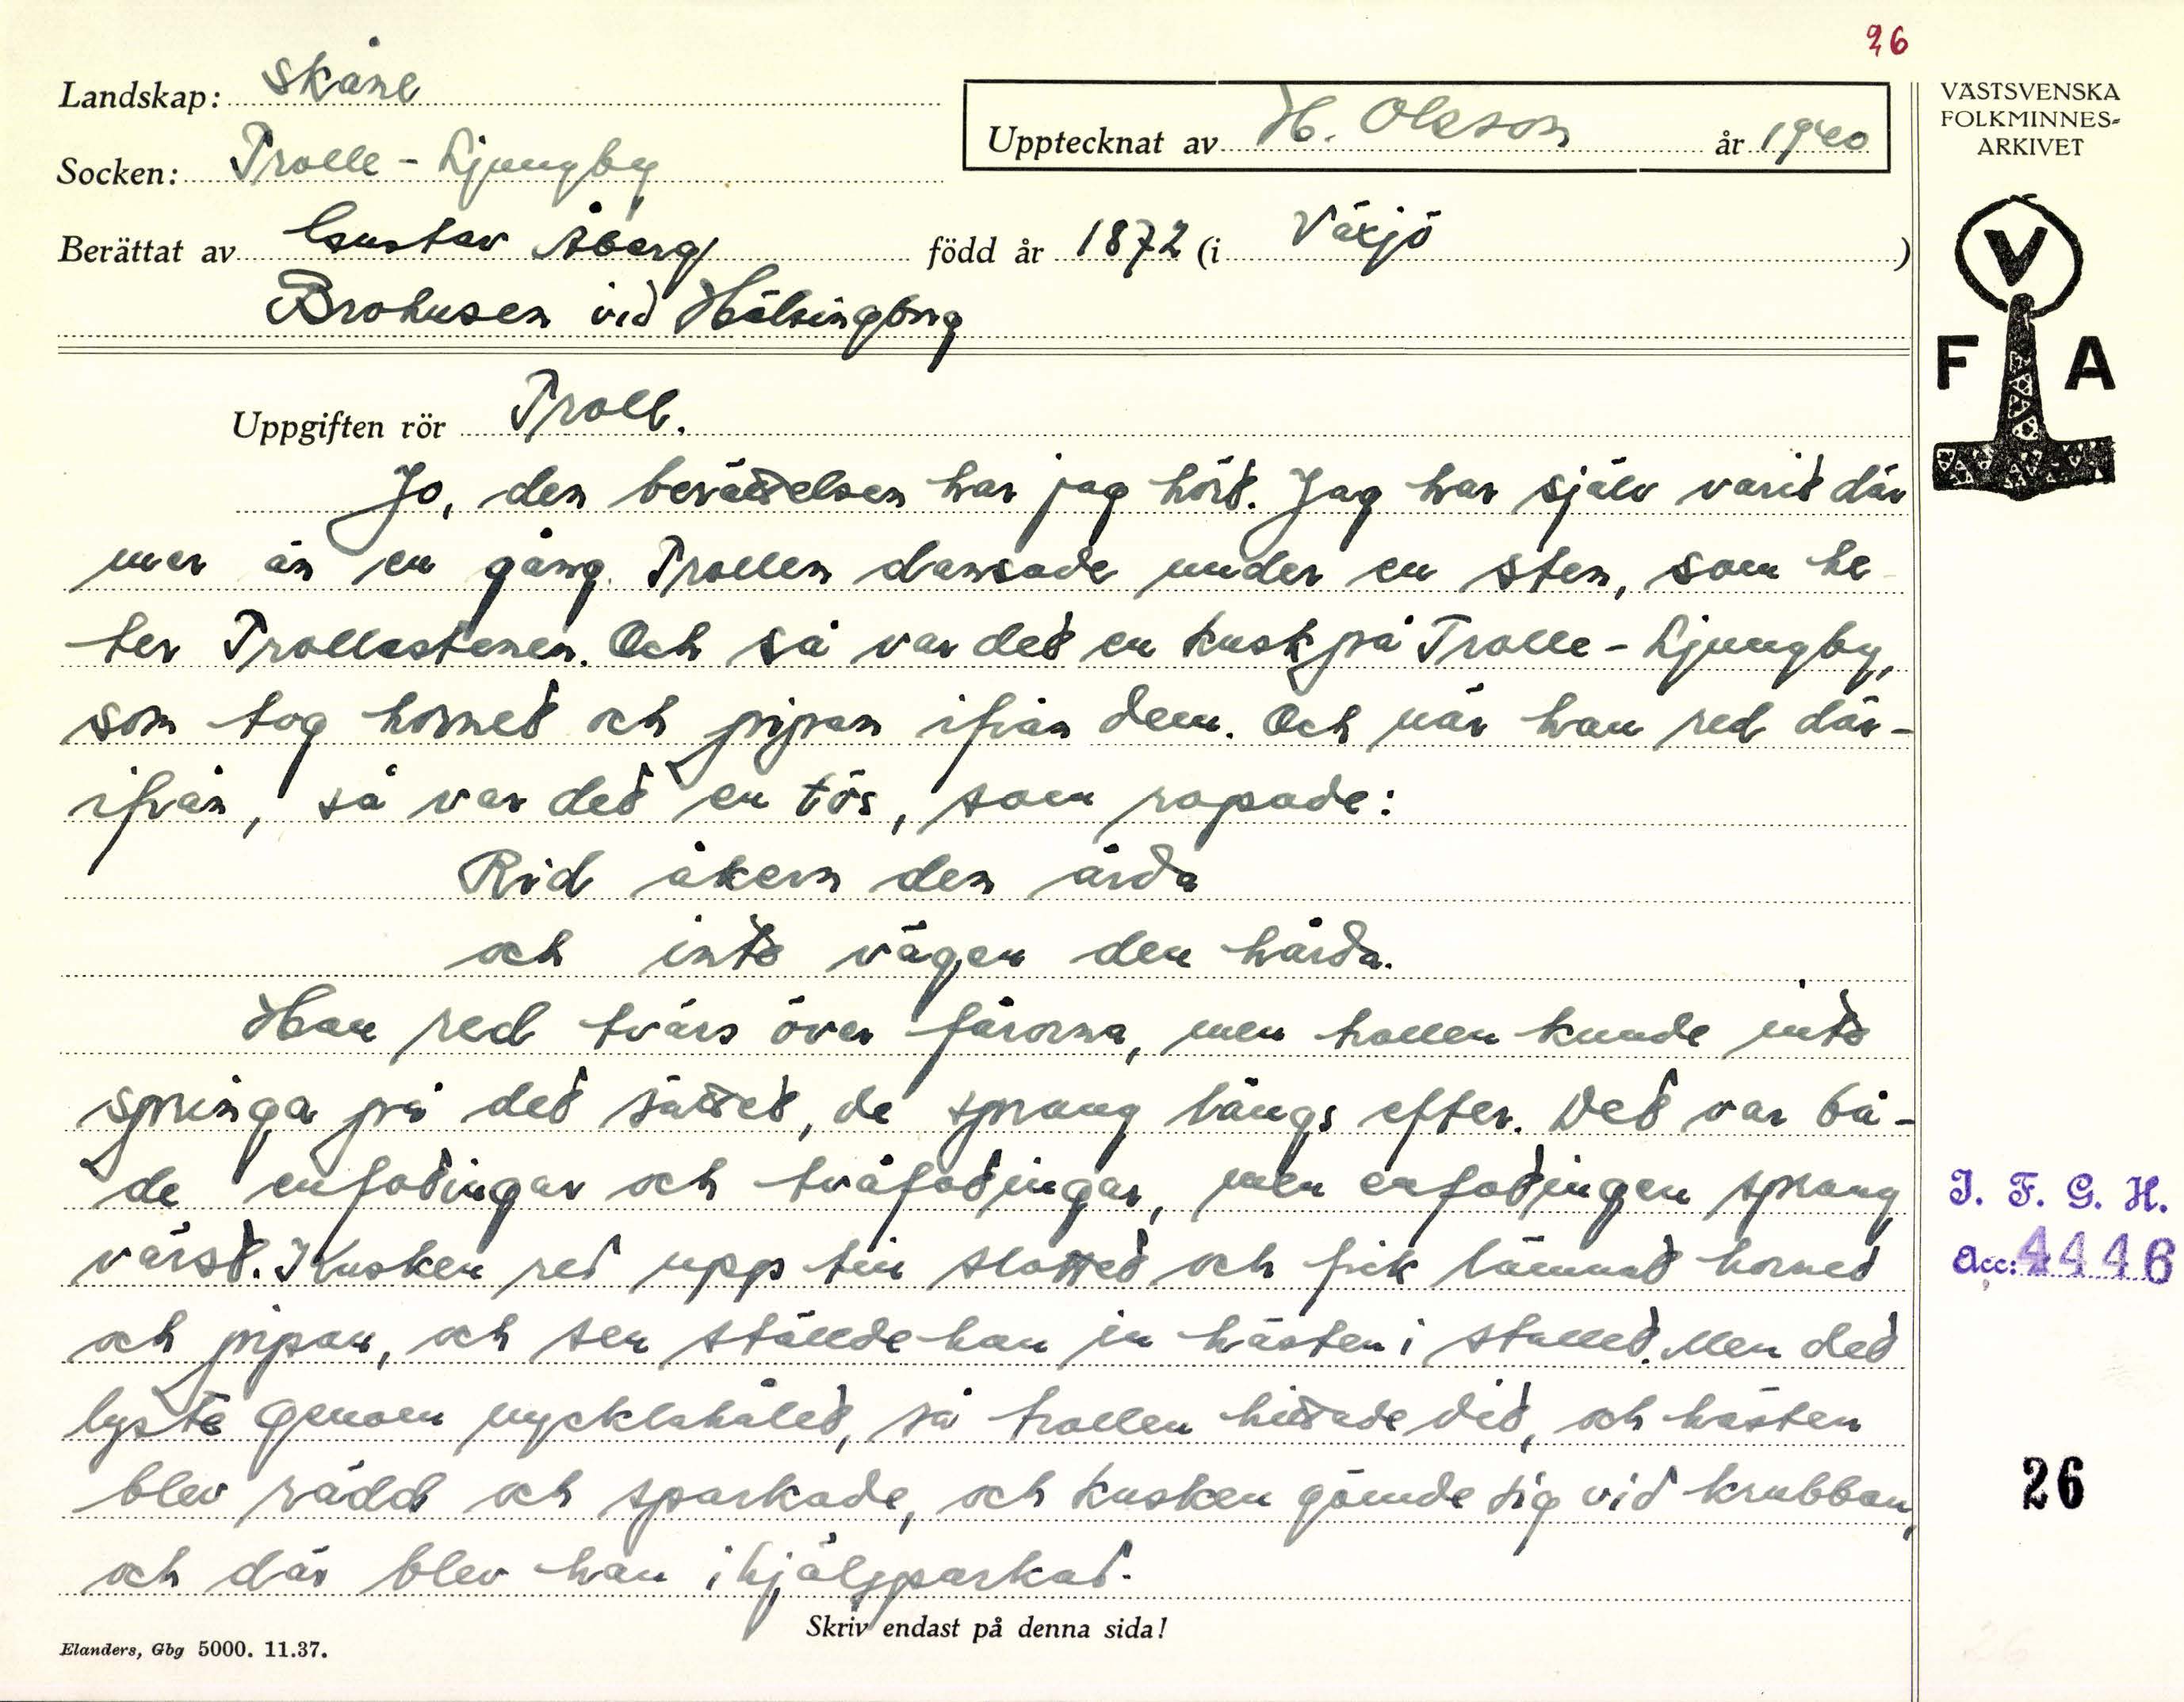 26
Landskap: Skåne
Upptecknat av H. Olsson år 1940
Socken: Trolle-Ljungby
Berättat av Gustav Åberg född år 1872 (i Växjö)
Brohusen vid Hälsingborg
Uppgiften rör Troll.
Jo, den berättelsen har jag hört. Jag har själv varit där
mer än en gång. Trollen dansade under en sten, som he
ter Trollastenen. Och så var det en kusk på Trolle-Ljungby,
som tog hornet och pipan ifrån dem. Och när han red där-
ifrån, så var det en tös, som ropade:
Rid åkern den årda
och inte vägen den hårda.
Han red tvärs över fårorna, men trollen kunde inte
springa på det sättet, de sprang längs efter. Det var bå-
de enfotingar och tvåfotingar, men enfotingen sprang
värst. Kusken red upp till slottet och fick lämnat hornet
och pipan, och sen ställde han in hästen i stallet. Men det
lyste genom nyckelahålet, så trollen hittade dit, och hästen
blev rädd och sparkade, och kusken gömde sig vid krubban,
och där blev han ihjälsparkad.
Skriv endast på denna sida!
Elanders, Gbg 5000. 11.37.
VÄSTSVENSKA
FOLKMINNES-
ARKIVET
V
F A
I. F. G. H.
Acc: 4446
26